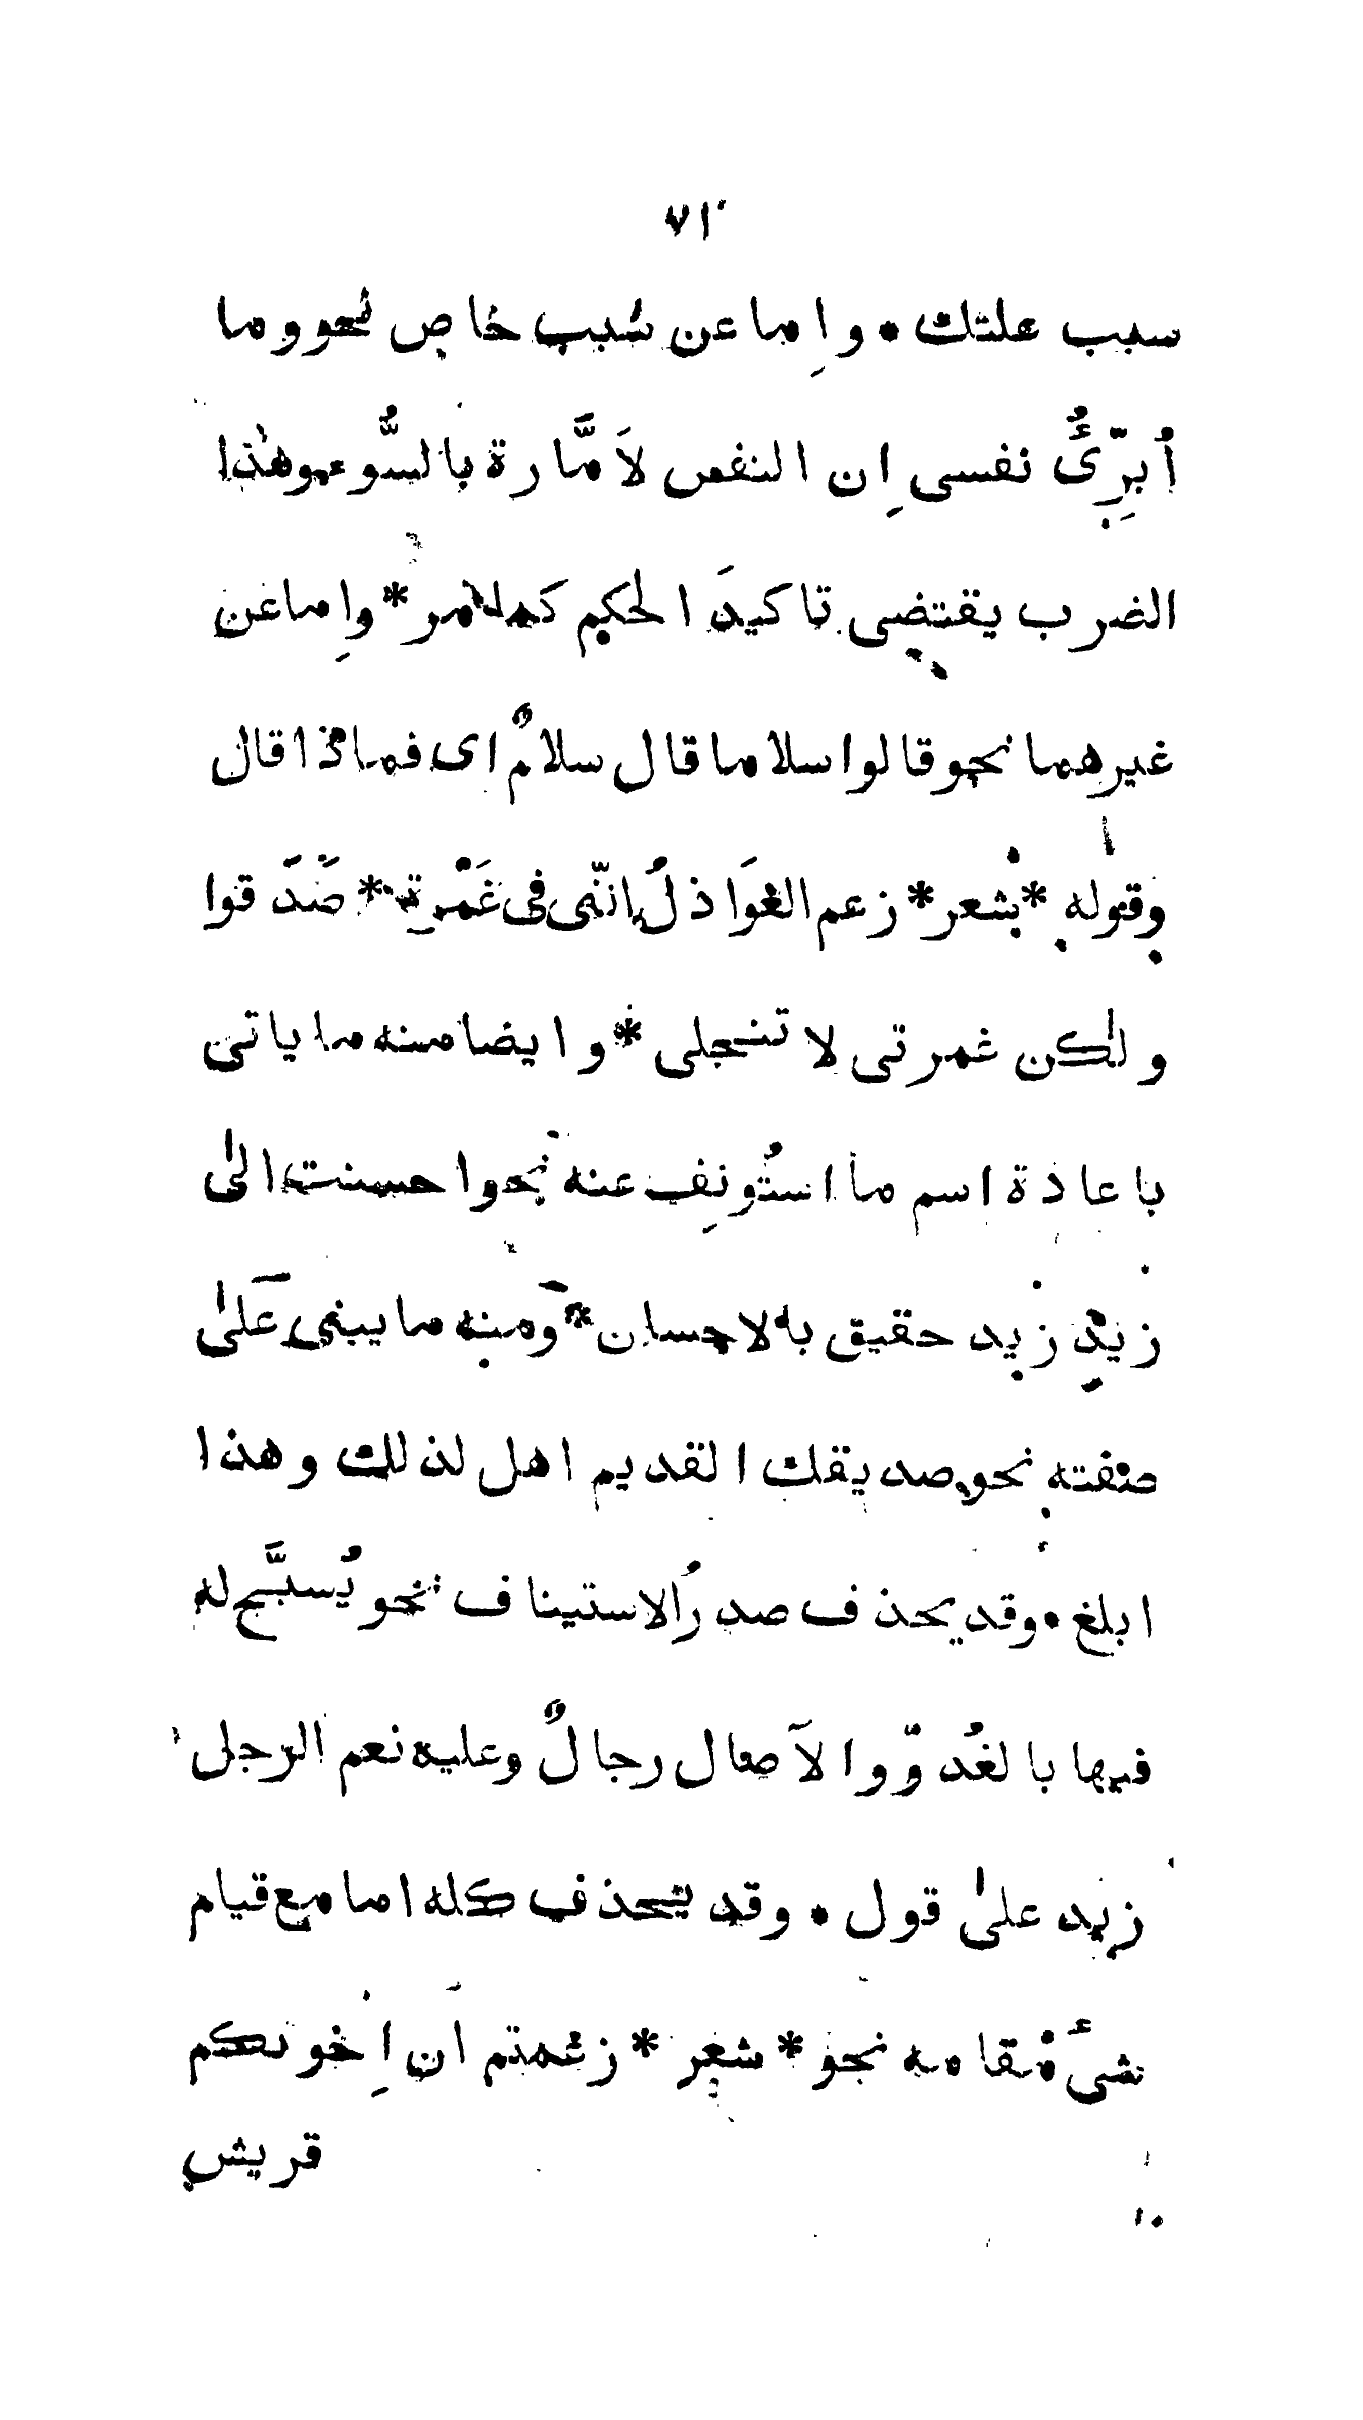 ٧١
سبب علتك • وإما عن سبب خاص نحو وما
أُبَرِّئُ نفسى إن النفس لاَمَّارة بالسُّوء وهٰذا
الضرب يقتضى تاكيدَ الحكم كما مر * وإما عن
غيرهما نحو قالوا سلاما قال سلامٌ اى فماذا قال
وقوله * شعر * زعم العَوَاذلُ انّنى فى غَمْرة * صَدَقوا
ولٰكن غمرتى لا تنجلى * وايضا منه ما ياتى
باعادة اسم ما استُونِف عنه نحو احسنت الىٰ
زيد زيد حقيق بالاحسان * ومنه ما يبنى علىٰ
صفته نحو صديقك القديم اهل لذلك وهذا
ابلغ • وقد يحذف صدرُ الاستيناف نحو يُسبَّح له
فيها بالغُدوّ والآصال رجالٌ وعليه نعم الرّجل
زيد علىٰ قول • وقد يحذف كله اما مع قيام
شىٔ مقامه نحو * شعر * زعمتم ان اِخوتكم
قريش